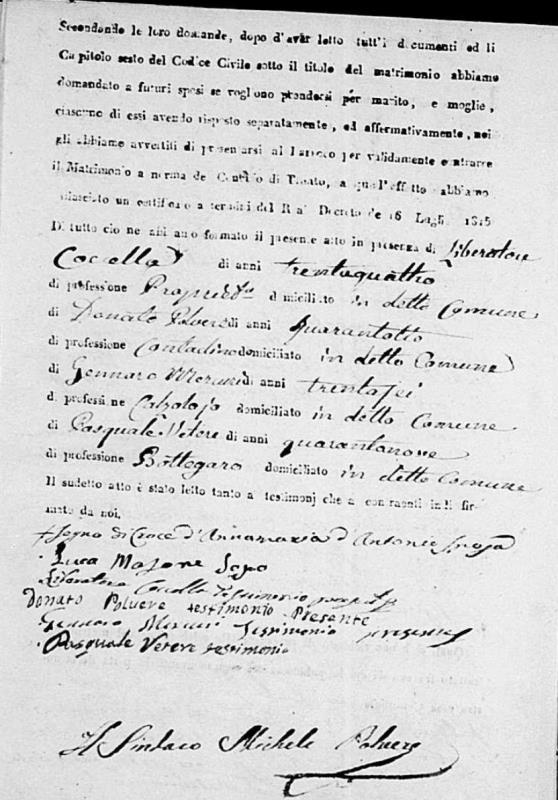 Secondando le loro domande, dopo d'aver letto tutt'i documenti ed li
Capitolo sesto del Codice Civile sotto il titolo del matrimonio abbiamo
domandato a futuri sposi se vogliono prendersi per marito, e moglie,
ciascuno di essi avendo risposto separatamente, ed affermativamente, noi
gli abbiamo avvertiti di presentarsi al Parroco per validamente contrarre
il Matrimonio a norma del Concilio di Trento, a qual'effetto abbiamo
rilasciato un certificato a termini del Real Decreto de 16 Luglio 1815
Di tutto ciò ne abbiamo formato il presente atto in presenza di Liberatore
Cocolla di anni trentaquattro
di professione Propriet.º domiciliato in detto Comune
di Donato Polvere di anni Quarantotto
di professione Contadino domiciliato in detto Comune
di Gennaro Mercuri di anni trentasei
di professione Calzolajo domiciliato in detto Comune
di Pasquale Vetere di anni quarantanove
di professione Bottegaro domiciliato in detto Comune
Il sudetto atto è stato letto tanto a testimonj che a contraenti indi fir-
mato da noi.
+ Segno di Croce d'Annamaria d'Antonio sposa
Luca Masone Sposo
Liberatore Cocolla Testimonio
Donato Polvere testimonio Presente
Gennaro Mercuri Testimonio presente
Pasquale Vetere testimonio
Il Sindaco Michele Polvere